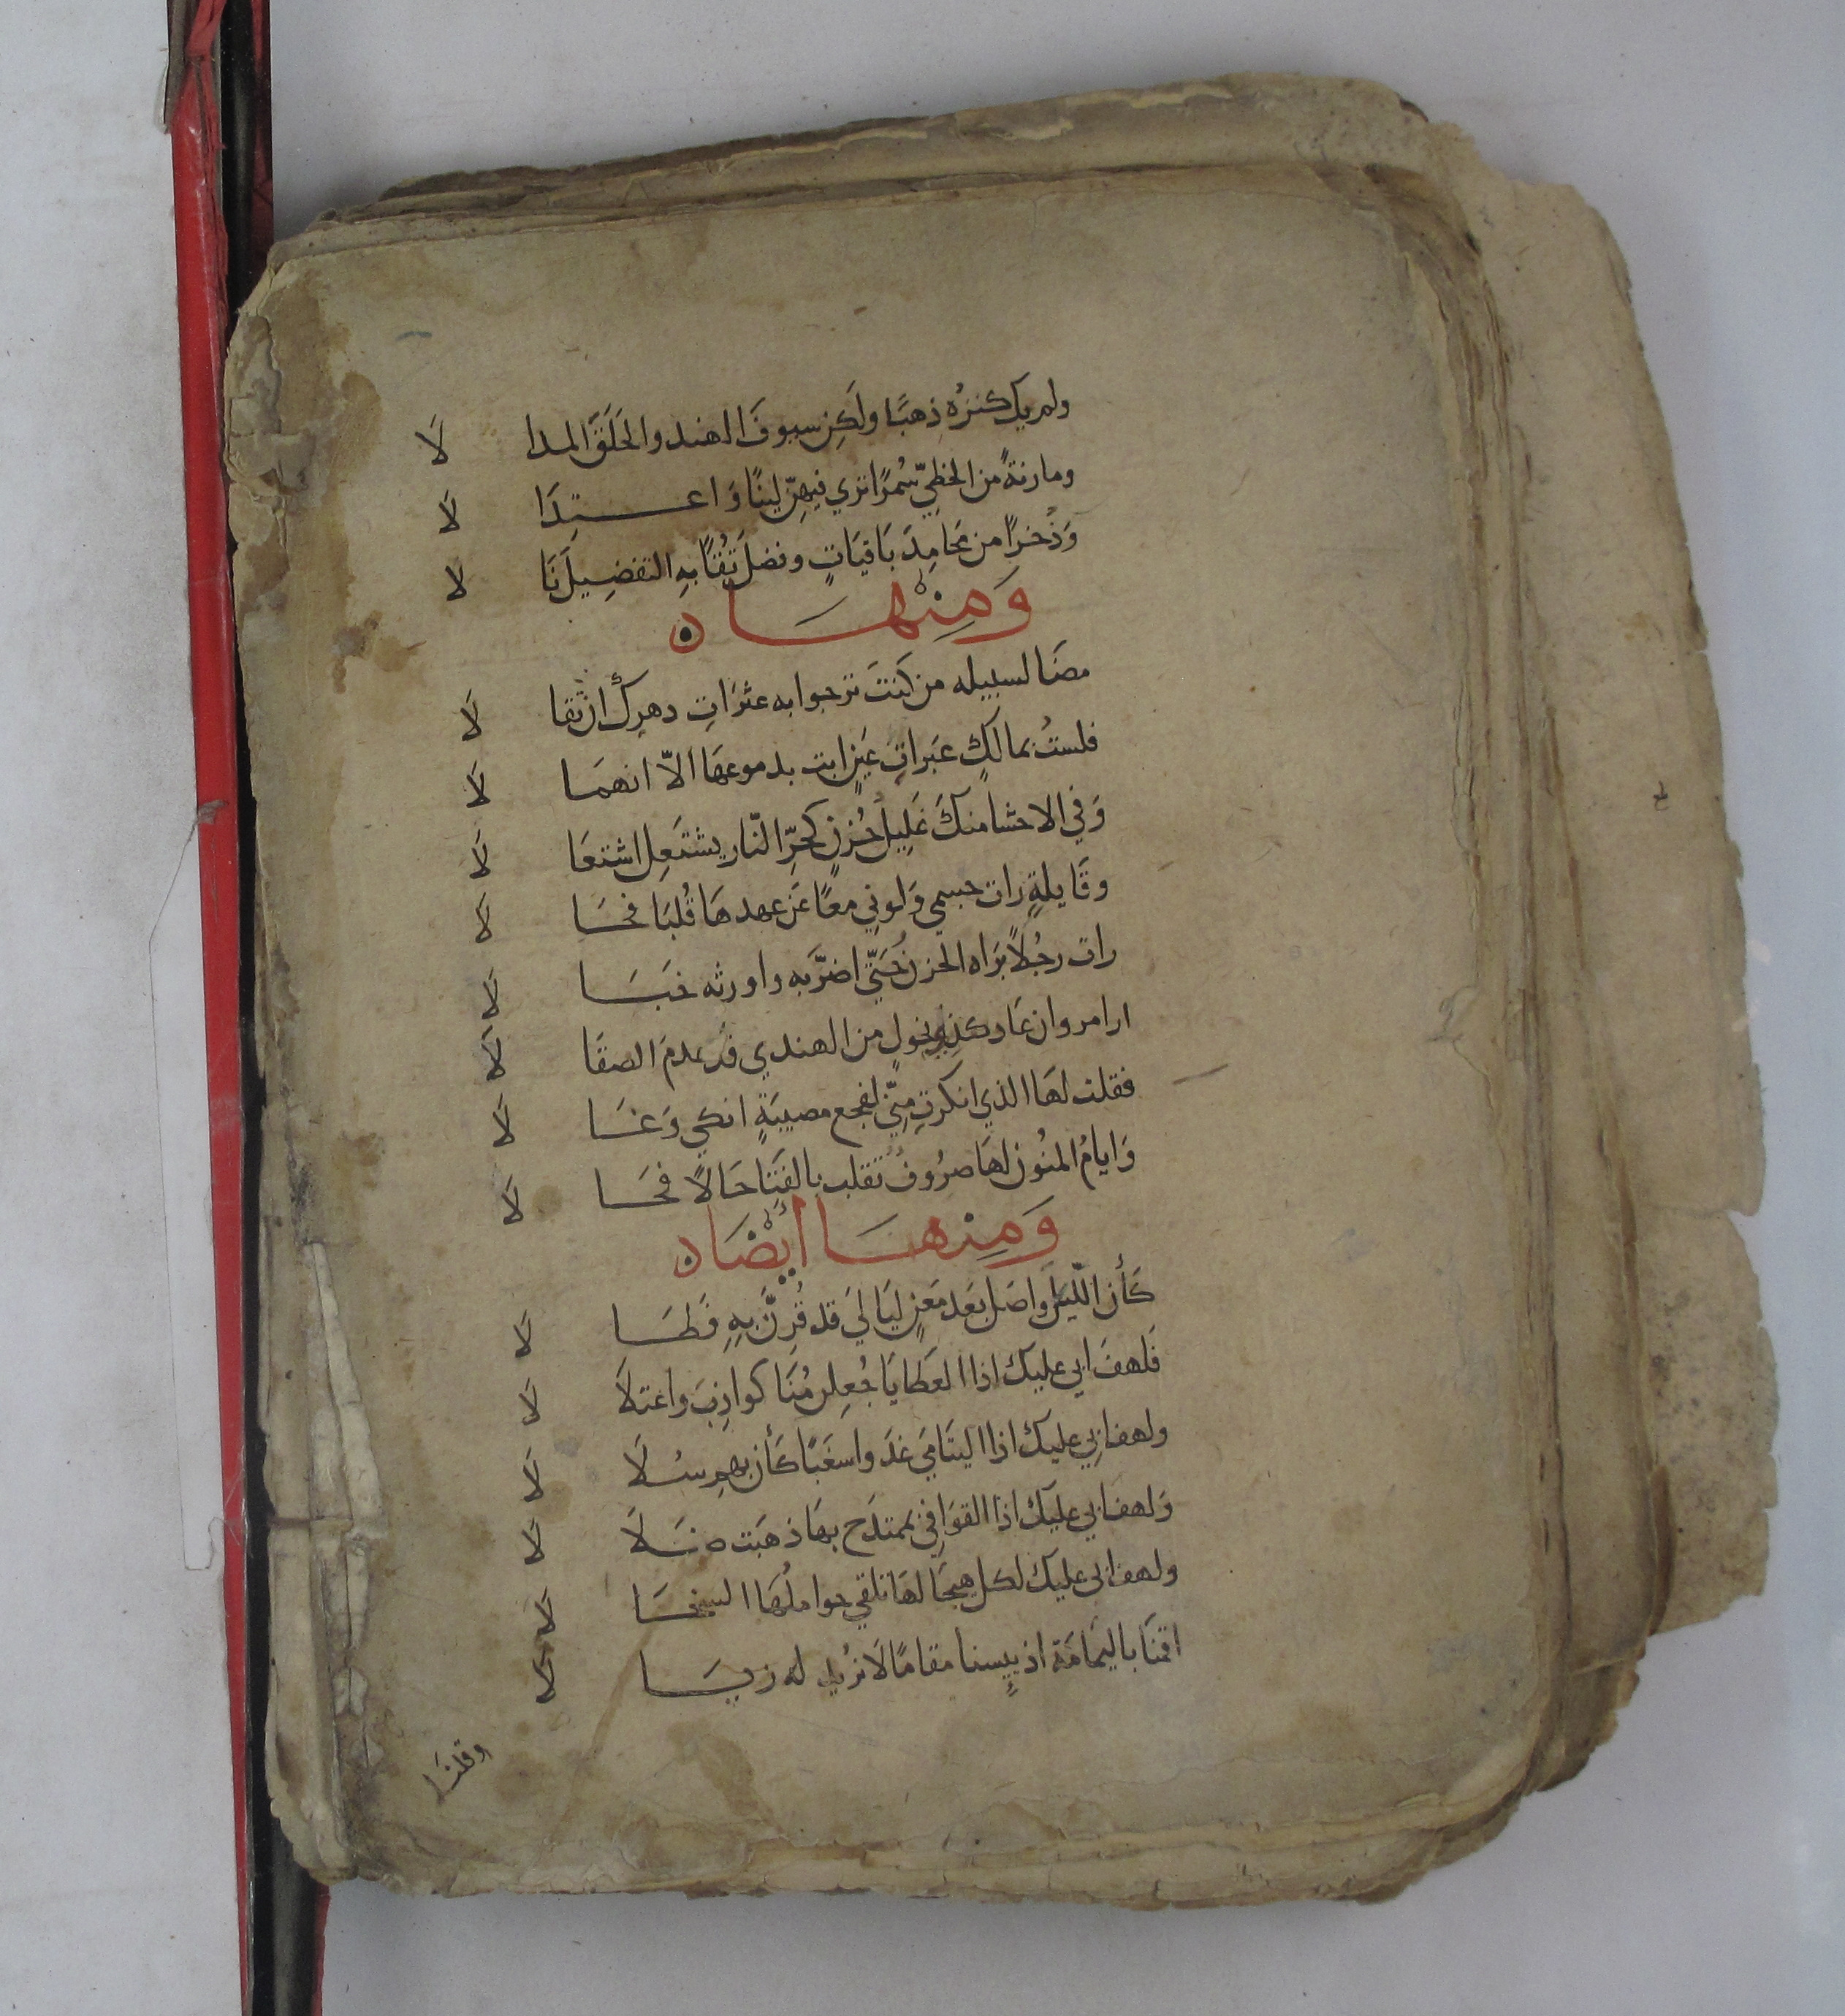 ولم يك كنزه ذهبًا ولكن سيوفَ الهند والحَلَقَ المدا لَا
ومارنةً من الخطِيّ سُمرًا تري فيهنّ لينًا وَاعـتِدَا لَا
وَذُخرًا من مَحامِدَ بَاقيَاتٍ وفضل تُقًا بهِ التفضِيل نَا لَا
وَمِنْهَا ه
مضَا لسبيله من كنتَ ترجوا به عثرَاتِ دهرِكَ ان تقا لَا
فلستُ بمالكٍ عبَراتِ عَينٍ ابت بدموعهَا الاّ انهمَا لَا
وَفي الاحشا منكَ غَلِيلَ حُزنٍ كحرِّ النّار يشتَعِل اشتعَا لَا
وقَايلةٍ رات جسمي وَلوني معًا عَن عهدهَا قُلبَا فحَا لَا
رات رجُلاً برَاه الحزن حَتّي اضرَّ به واورثه خبَا لَا
ارا مروان عَاد كذي نحولٍ من الهندي قد عدمَ الصقَا لَا
فقلت لهَا الذي انكرتِ مِنّي لفجع مصيبَةٍ انكي وَغَا لَا
وَايامُ المنُون لهَا صرُوفٌ تقلب بالفتَا حَالاً فحَا لَا
وَمِنْهَا ايْضًا ه
كَأن اللّيل واصَل بَعد مَعنٍ ليَالِيَ قد قُرِنَّ بهِ فَطَا لَا
فَلهفَ ابي عليك اذا العَطايَا جُعِلن مُنَا كواذِبَ واعتلَا لَا
ولهف ابي عليك اذا اليتَامَي غدَوا سغَبًا كَأن بهم سُلَا لَا
وَلهف ابي عليك اذا القوَافِي لممتدَح بهَا ذهَبت ضَلَا لَا
ولهف ابي عليك لكل هيجَا لهَا تلقي حواملُهَا السخَا لَا
اقمنَا باليمَامَة اذ يئِسنا مقامًا لَا نرُيد له زيَا لَا
وقلنَا